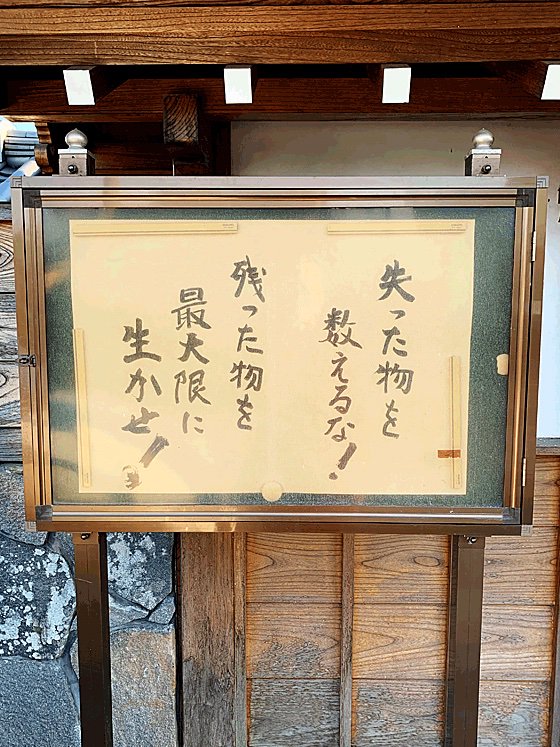 失った物を
数えるな!
残った物を
最大限に
生かせ!